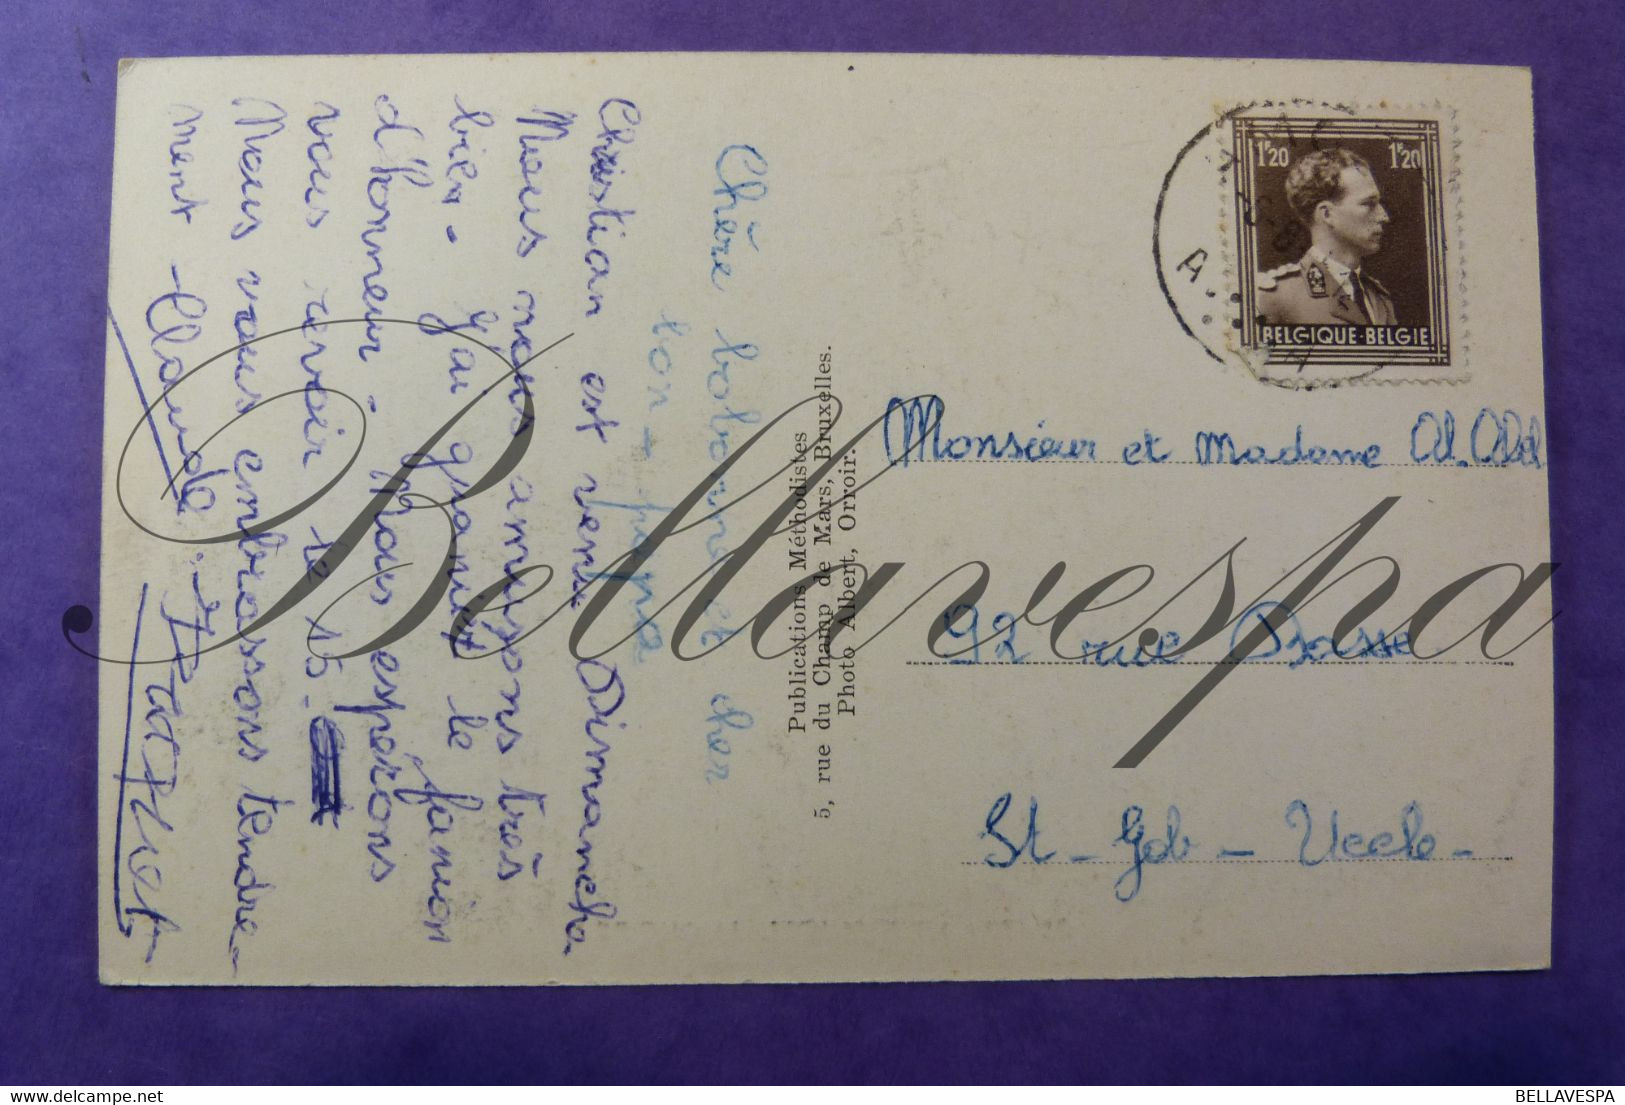 Chère bobonne et cher
bon-papa
Christian est venu Dimanche.
Nous nous amusons très
bien. J'ai gravit le fanion
d'honneur. Nous espérons
vous revoir le 15.
Nous vous embrassons tendre-
ment Claude. Jacquot
Publications Méthodistes
5, rue du Champ de Mars, Bruxelles.
Photo Albert, Orroir.
1F20 1F20
BELGIQUE·BELGIE
Monsieur et Madame
92 rue Basse
St-Job-Uccle-
Bellavespa
BELLAVESPA